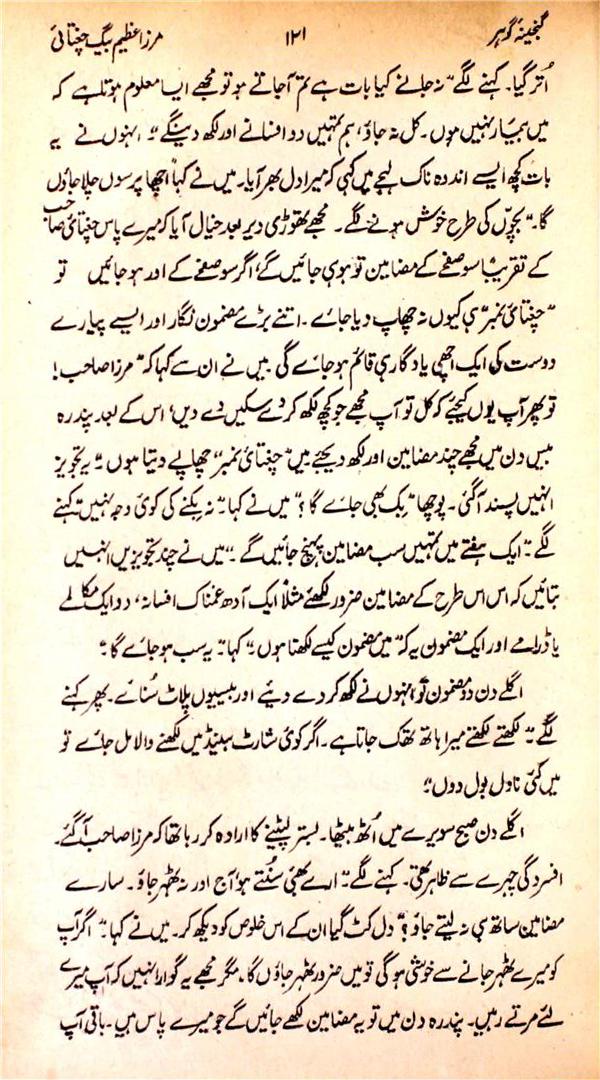 گنجینۂ گوہر ۱۲۱ مرزا عظیم بیگ چغتائی
اُتر گیا۔ کہنے لگے "نہ جانے کیا بات ہے تم آجاتے ہو تو مجھے ایسا معلوم ہوتا ہے کہ
میں بیمار نہیں ہوں۔ کل نہ جاؤ، ہم تمہیں دو افسانے اور لکھ دینگے"۔ انہوں نے یہ
بات کچھ ایسے اندوہ ناک لہجے میں کہی کہ میرا دل بھر آیا۔ میں نے کہا "اچھا پرسوں چلا جاؤں
گا۔" بچّوں کی طرح خوش ہونے لگے۔ مجھے تھوڑی دیر بعد خیال آیا کہ میرے پاس چغتائی صاحب
کے تقریباً سو صفحے کے مضامین تو ہو ہی جائیں گے، اگر سو صفحے کے اور ہو جائیں تو
"چغتائی نمبر" ہی کیوں نہ چھاپ دیا جائے۔ اتنے بڑے مضمون نگار اور ایسے پیارے
دوست کی ایک اچھی یادگار ہی قائم ہو جائے گی۔ میں نے ان سے کہا کہ "مرزا صاحب!
تو پھر آپ یوں کیجئے کہ کل تو آپ مجھے جو کچھ لکھ کر دے سکیں دے دیں، اس کے بعد پندرہ
بیس دن میں مجھے چند مضامین اور لکھ دیجئے میں "چغتائی نمبر" چھاپے دیتا ہوں"۔ یہ تجویز
انہیں پسند آگئی۔ پوچھا "بِک بھی جائے گا؟" میں نے کہا "نہ بکنے کی کوئی وجہ نہیں" کہنے
لگے "ایک ہفتے میں تمہیں سب مضامین پہنچ جائیں گے۔" میں نے چند تجویزیں انہیں
بتائیں کہ اس اس طرح کے مضامین ضرور لکھئے مثلاً ایک آدھ غمناک افسانہ، دو ایک مکالمے
یا ڈرامے اور ایک مضمون یہ کہ "میں مضمون کیسے لکھتا ہوں" کہا "یہ سب ہو جائے گا"۔
اگلے دن دو مضمون تو انہوں نے لکھ کر دے دیئے اور بیسیوں پلاٹ سُنائے۔ پھر کہنے
لگے "لکھتے لکھتے میرا ہاتھ تھک جاتا ہے۔ اگر کوئی شارٹ ہینڈ میں لکھنے والا مل جائے تو
میں کئی ناول بول دوں"۔
اگلے دن صبح سویرے میں اُٹھ بیٹھا۔ بستر لپٹنے کا ارادہ کر رہا تھا کہ مرزا صاحب آگئے۔
افسردگی چہرے سے ظاہر تھی۔ کہنے لگے "ارے بھئی سُنتے ہو، آج اور نہ ٹھہر جاؤ۔ سارے
مضامین ساتھ ہی نہ لیتے جاؤ؟" دل کٹ گیا ان کے اس خلوص کو دیکھ کر۔ میں نے کہا "اگر آپ
کو میرے ٹھہر جانے سے خوشی ہو گی تو میں ضرور ٹھہر جاؤں گا، مگر مجھے یہ گوارا نہیں کہ آپ میرے
لئے مرتے رہیں۔ پندرہ دن میں تو یہ مضامین لکھے جائیں گے جو میرے پاس ہیں۔ باقی آپ